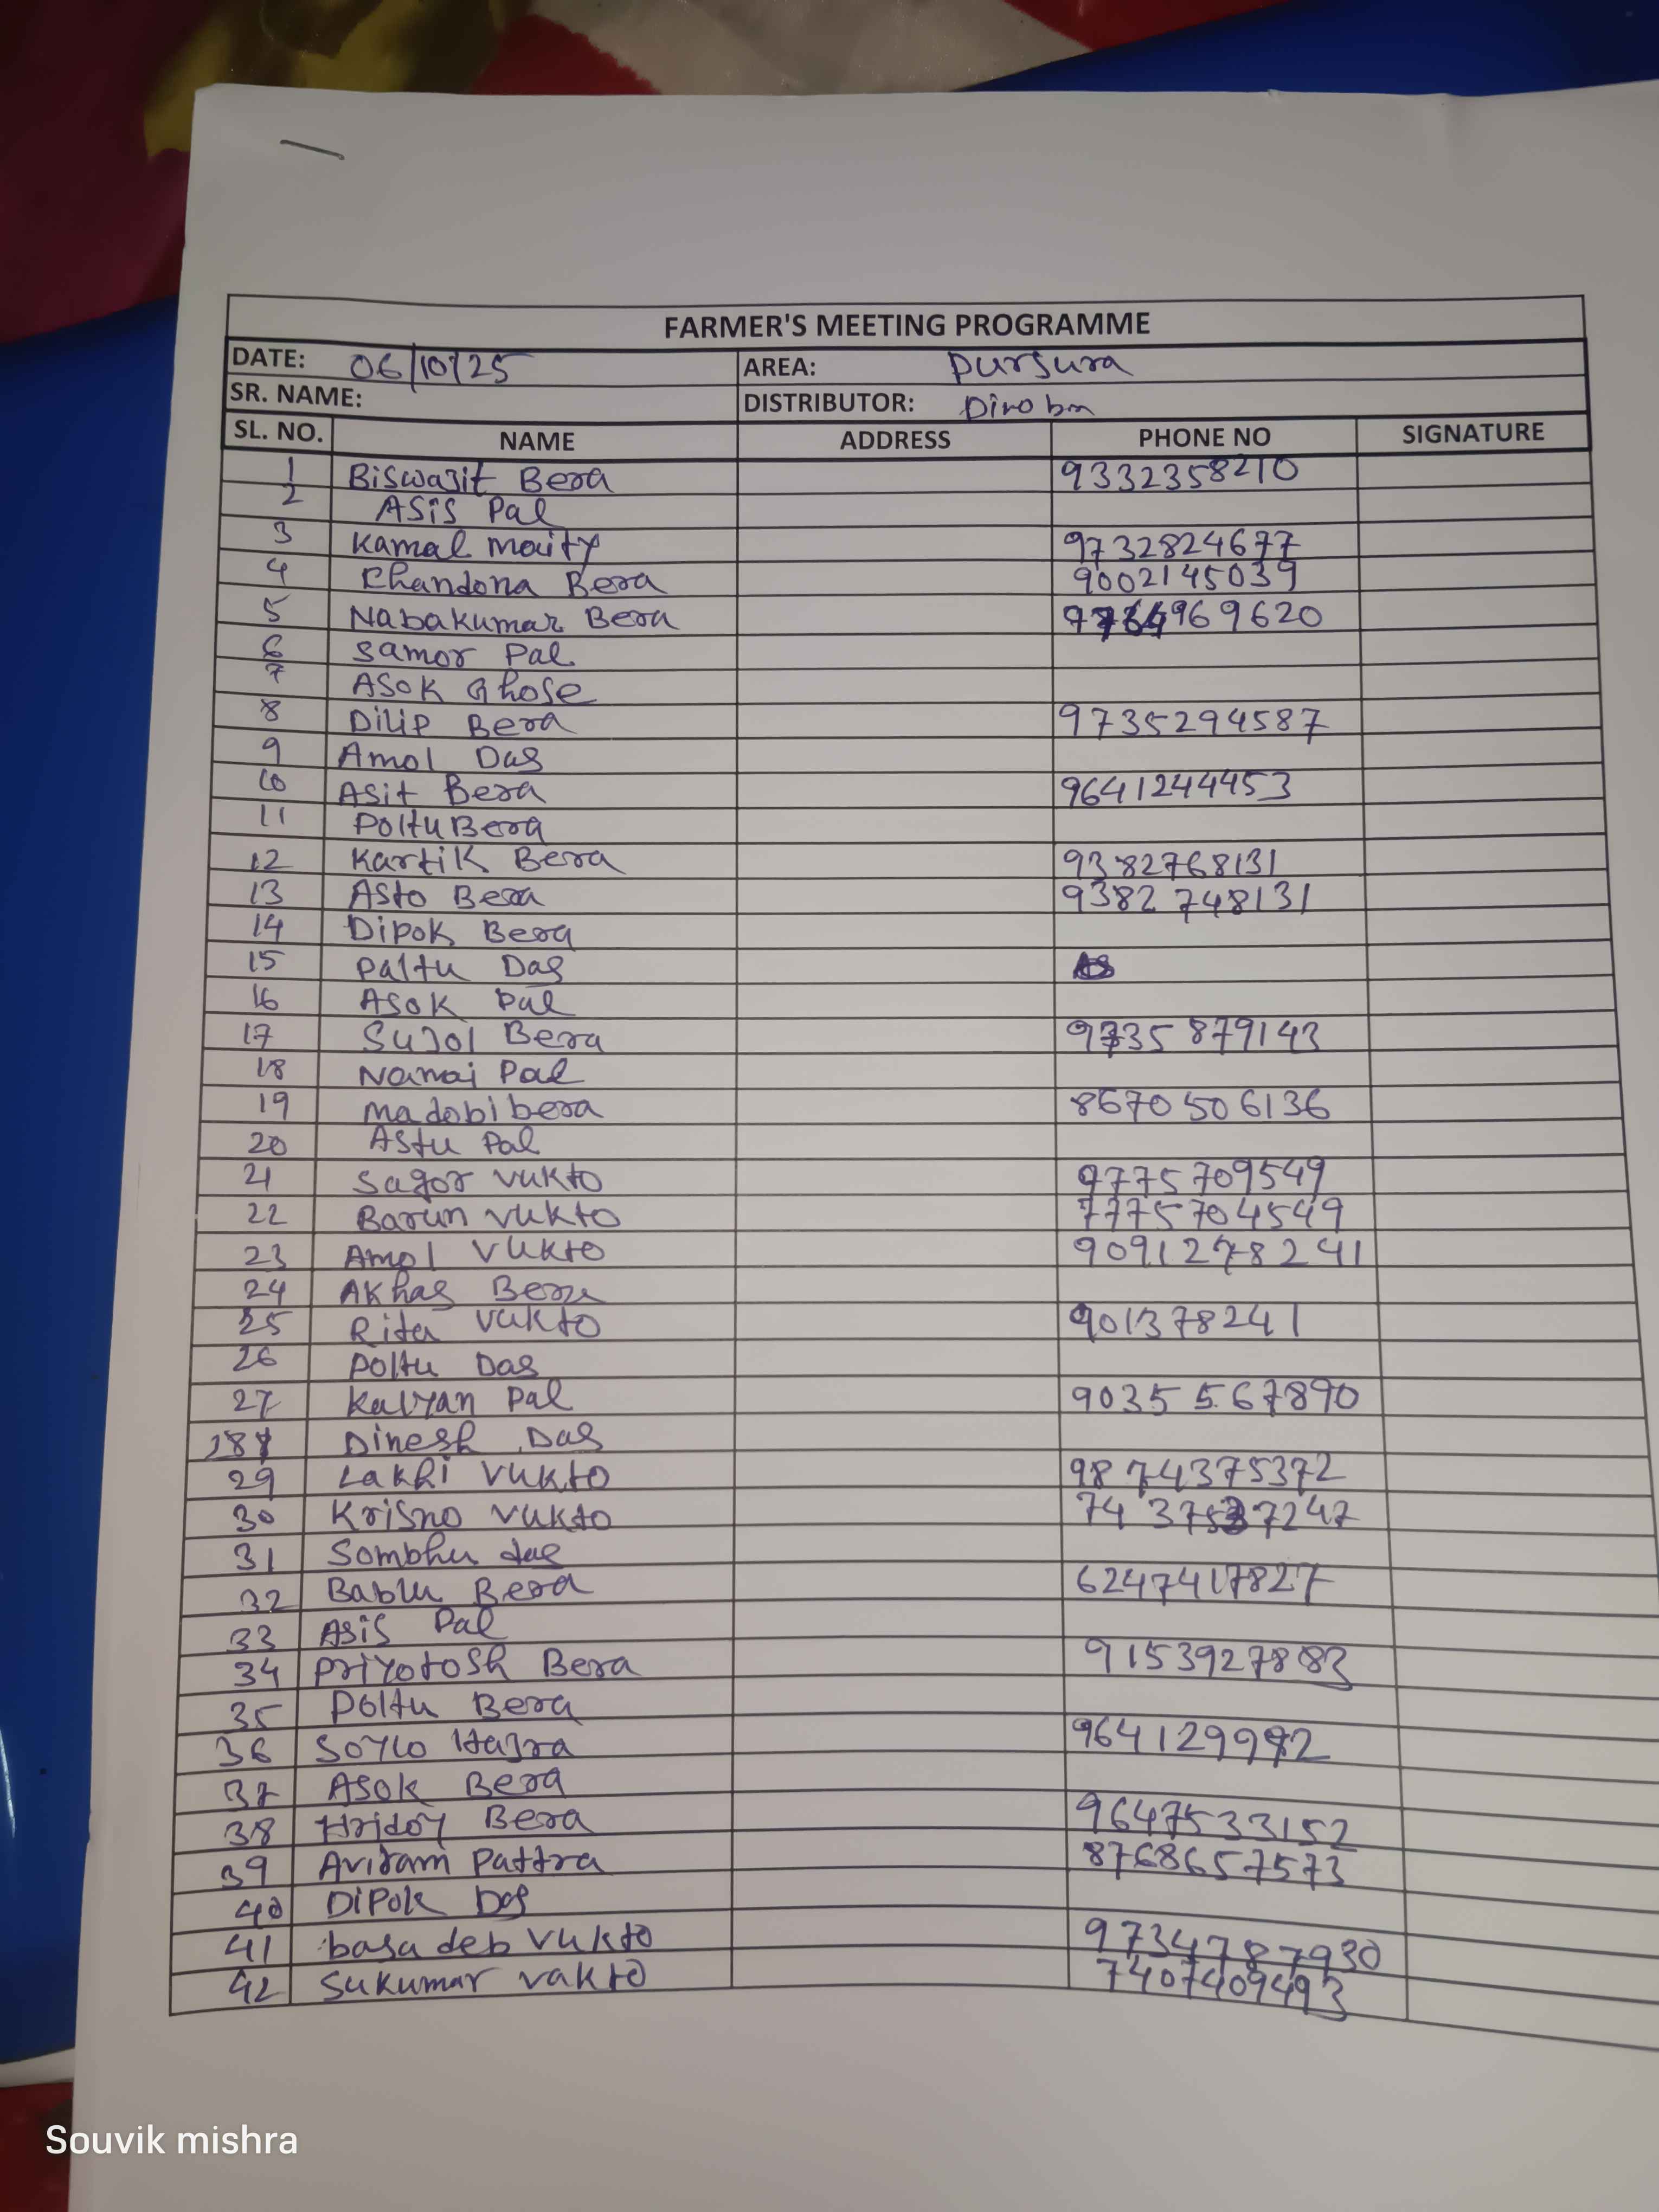 FARMER'S MEETING PROGRAMME
DATE: 06/10/25 AREA: Pursura
SR. NAME: DISTRIBUTOR:
SL. NO. NAME ADDRESS PHONE NO SIGNATURE
1 Biswajit Bera 9332358210
2 Asis Pal
3 Kamal Maity 9732824677
4 Chandona Bera 9002145039
5 Nabakumar Bera
6 Samor Pal.
7 Asok Ghose
8 Dilip Bera 9735294587
9 Amol Das
10 Asit Bera 9641244453
11 Poltu Bera
12 Kartik Bera 9382768131
13 Asto Bera 9382748131
14 Dipok Bera
15 Paltu Das
16 Asok Pal
17 Sujol Bera 9735879143
18 Namai Pal
19 Madobi bera 8670506136
20 Astu Pal
21 Sagor Vukto 9775709549
22 Barun Vukto 7775704549
23 Amol Vukto 9091278241
24 Akhas Bera
25 Rita Vukto 901378241
26 Poltu Das
27 Kalyan Pal 9035567890
28 Dinesh Das
29 Lakhi Vukto 9874375372
30 Krisno Vukto
31 Sombhu das
32 Bablu Bera 6247417827
33 Asis Pal
34 Priyotosh Bera 9153927883
35 Poltu Bera
36 Soylo Hajra
37 Asok Bera
38 Hridoy Bera 9647533152
39 Aviram Pattra 8768657573
40 Dipok Das
41 basa deb Vukto 9734787930
42 Sukumar Vakto 7407409493
Souvik mishra